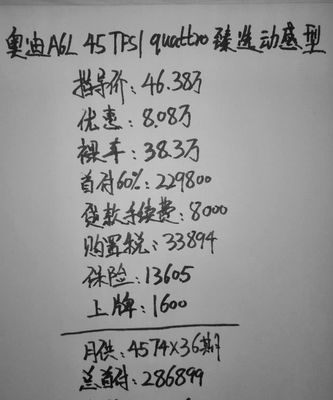 奥迪A6L 45 TFSI quattro 臻选动感型
指导价：46.38万
优惠：8.08万
裸车：38.3万
首付60%：229800
贷款手续费：8000
购置税：33894
保险：13605
上牌：1600
月供：4574×36期
总首付：286899